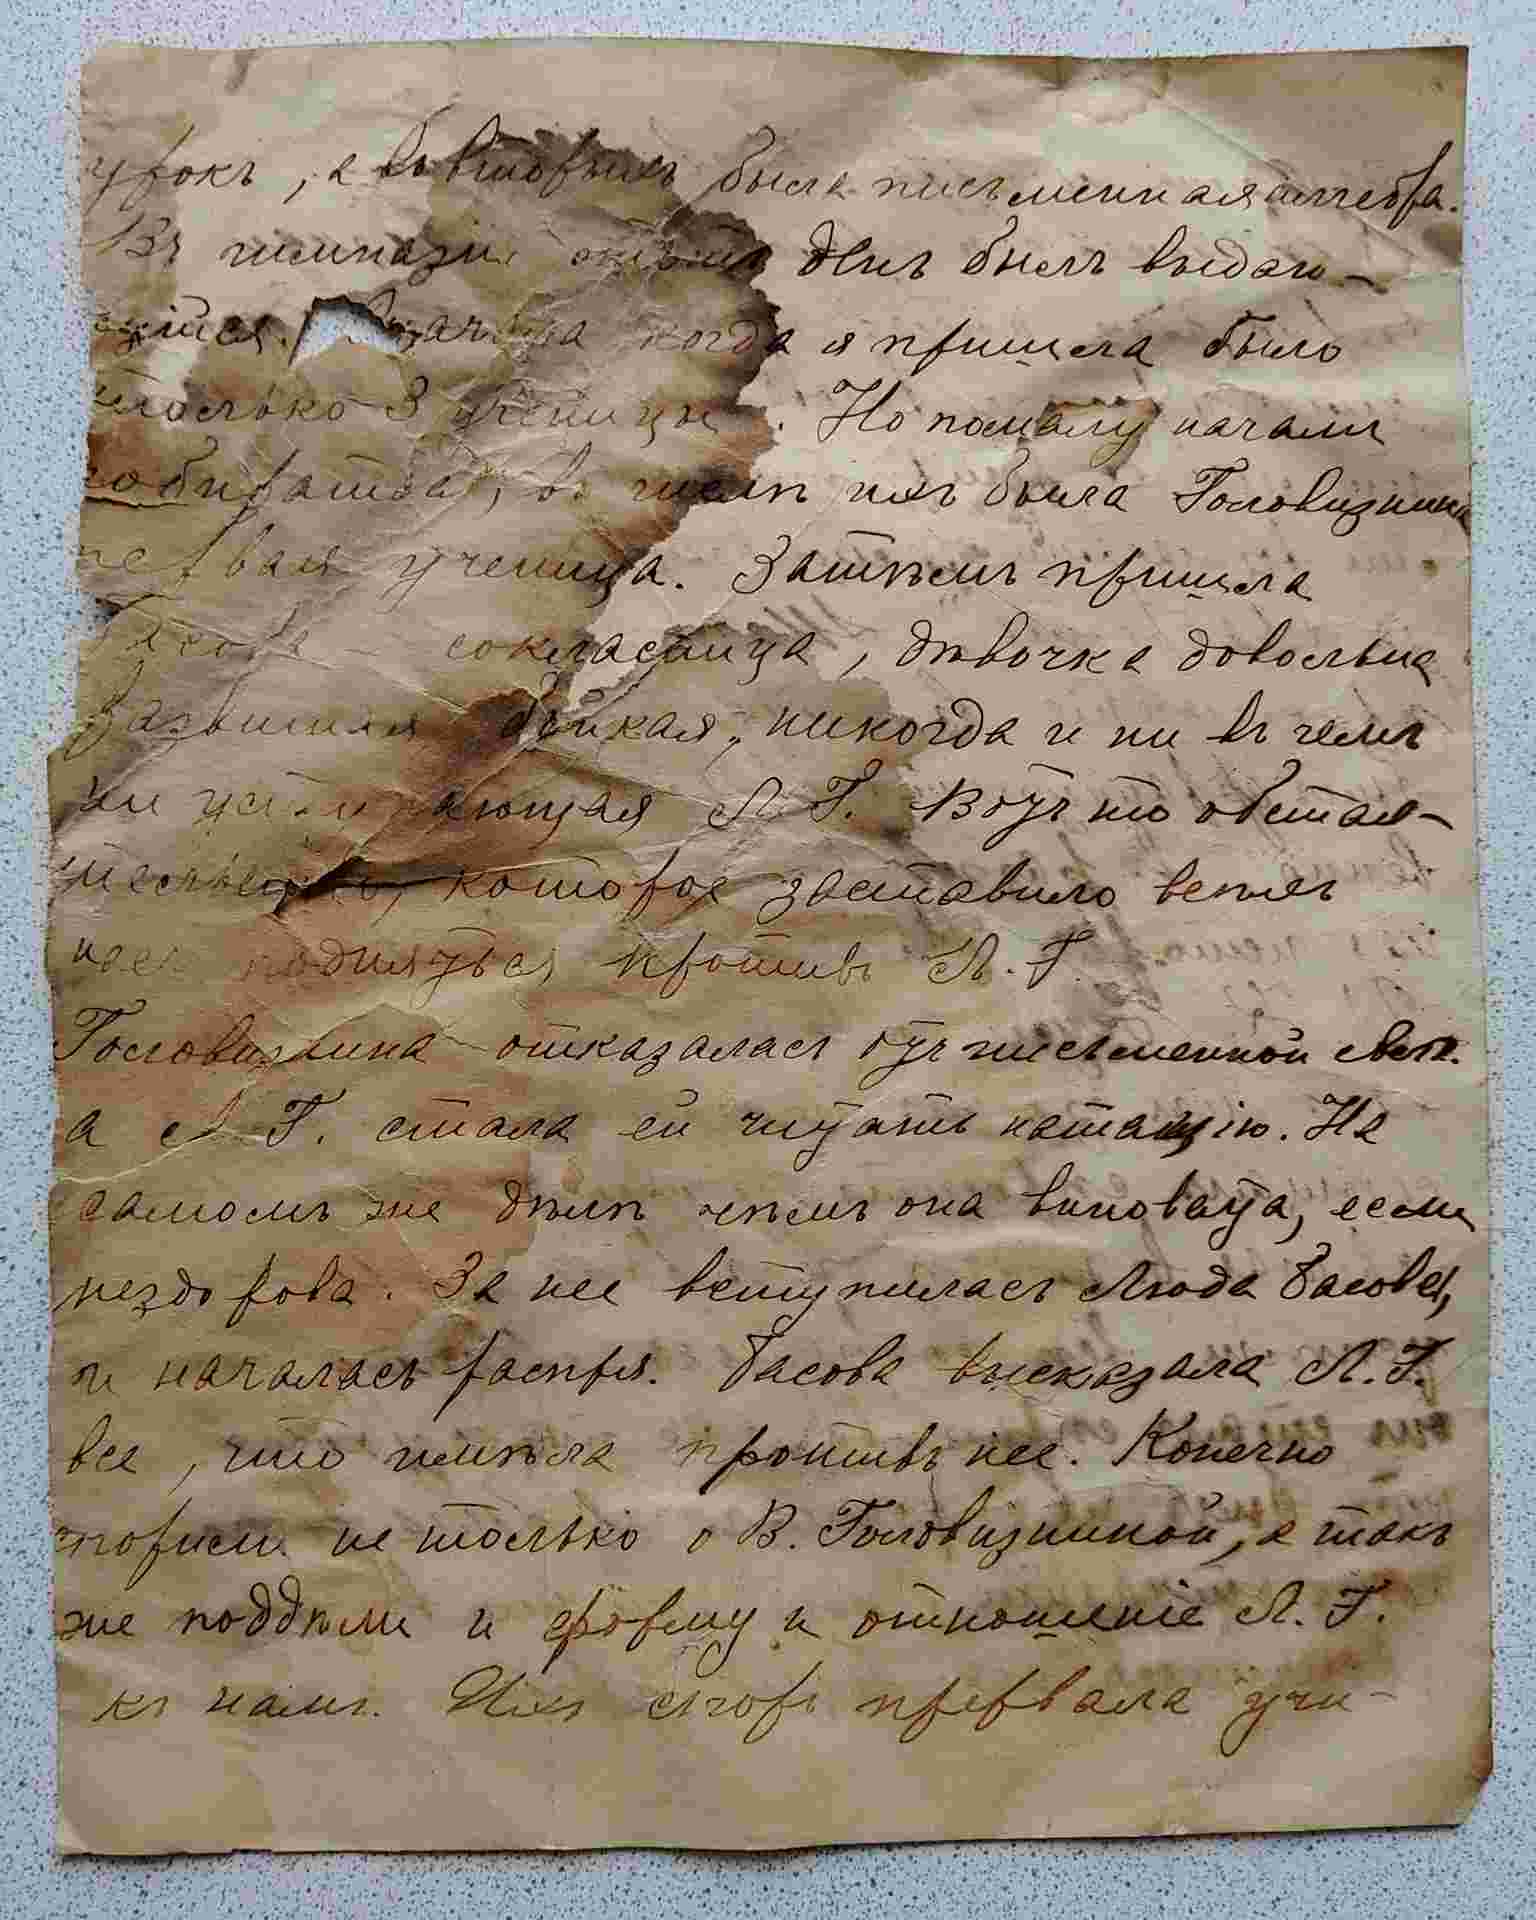 урокъ, а во вторыхъ была письменная алгебра.
Въ гимназіи этотъ день былъ выдаю-
щійся. когда я пришла было
только 3 ученицы. Но помалу начали
собираться, въ числѣ ихъ была Головизнина
первая ученица. Затѣмъ пришла
Басова - соклассница, дѣвочка довольна
развитая бойкая, никогда и ни въ чемъ
не уступающая Л. Г. Вотъ то обстоя-
тельство, которое заставило всѣхъ
насъ подняться противъ Л. Г.
Головизнина отказалась отъ письменной
а Л. Г. стала ей читать натацію. На
самомъ же дѣлѣ чѣмъ она виновата, если
нездорова. За нее вступилась Люда Басова,
и началась распря. Басова высказала Л. Г.
все, что имѣла противъ нее. Конечно
спорили не только о В. Головизниной, а такъ
же поддѣли и форму и отношеніе Л. Г.
къ намъ. Ихъ споръ прервала учи-